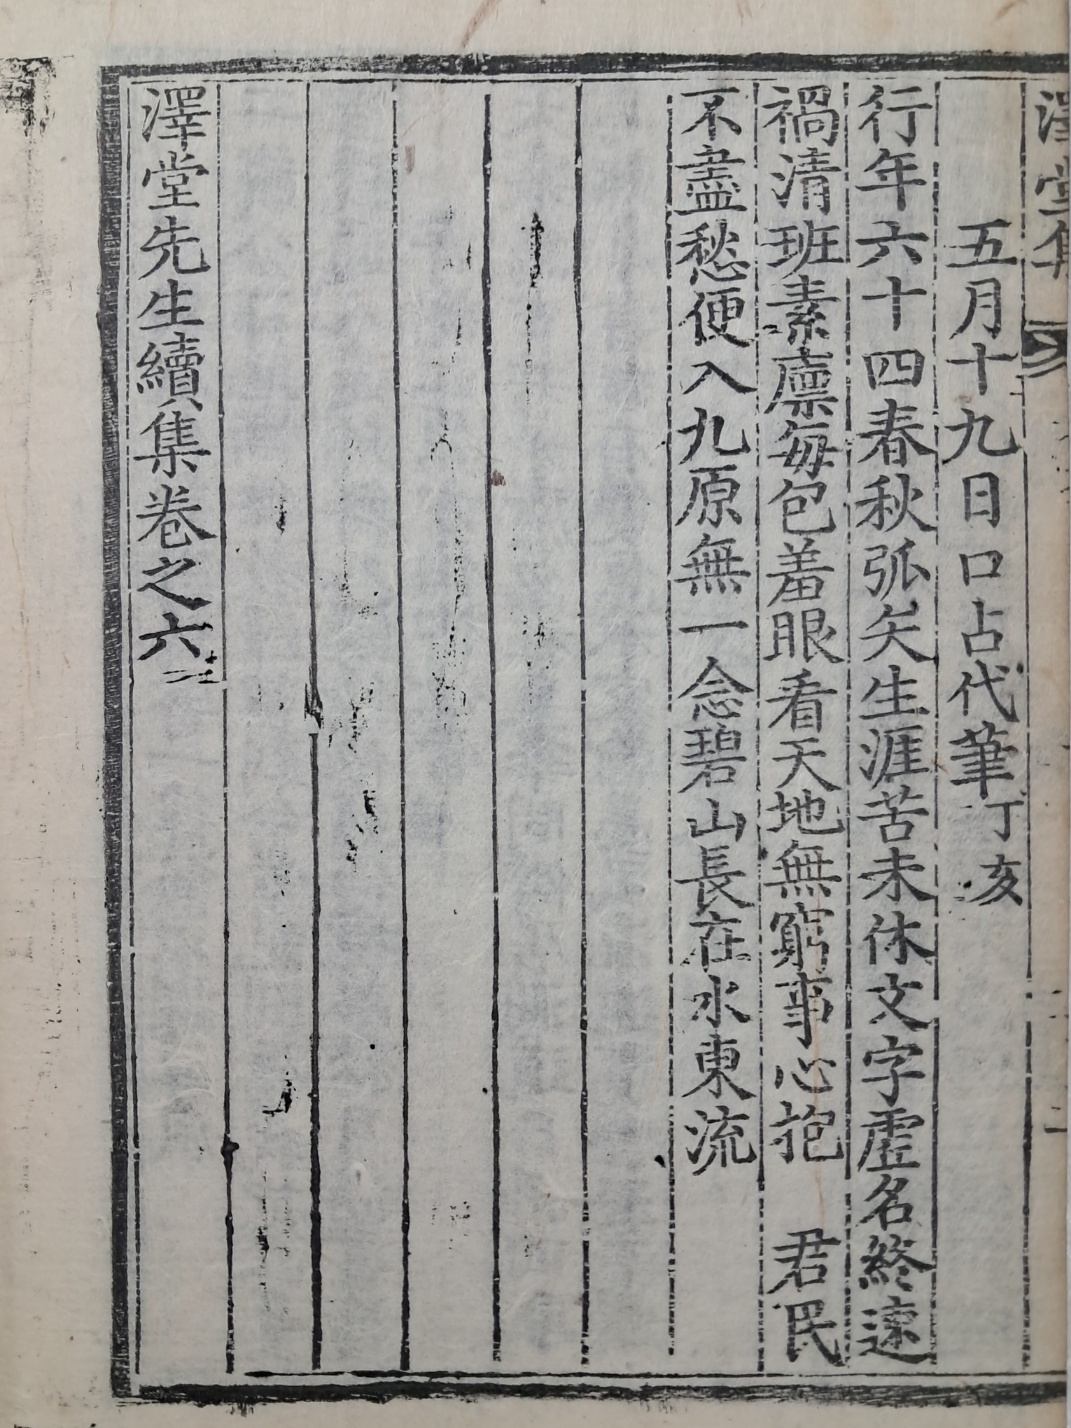 澤堂集
五月十九日口占代筆丁亥
行年六十四春秋弧矢生涯苦未休文字虛名終速
禍清班素廩每包羞眼看天地無窮事心抱 君民
不盡愁便入九原無一念碧山長在水東流
澤堂先生續集卷之六